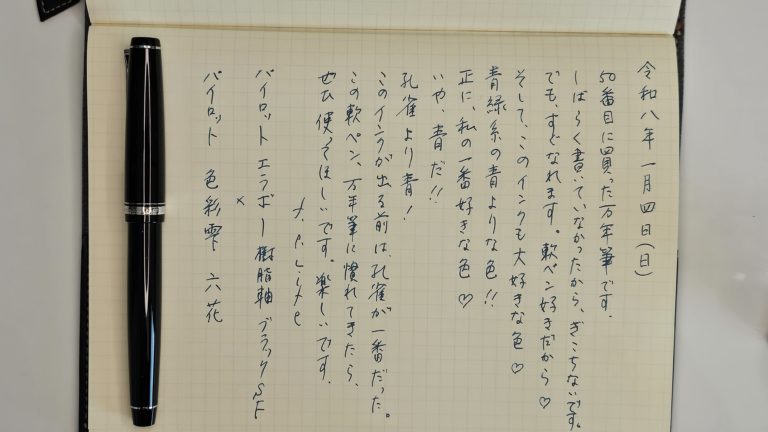 令和八年一月四日(日)
50番目に買った万年筆です.
しばらく書いていなかったから、ぎこちないです。
でも、すぐなれます。軟ペン好きだから♡
そして、このインクも大好きな色♡
青緑系の青よりな色!!
正に、私の一番好きな色♡
いや、青だ!!
孔雀より青!
このインクが出る前は、孔雀が一番だった。
この軟ペン、万年筆に慣れてきたら、
ぜひ使ってほしいです。楽しいです.
f.p.Life
パイロット エラボー樹脂軸 ブラックSF
×
パイロット 色彩雫 六花